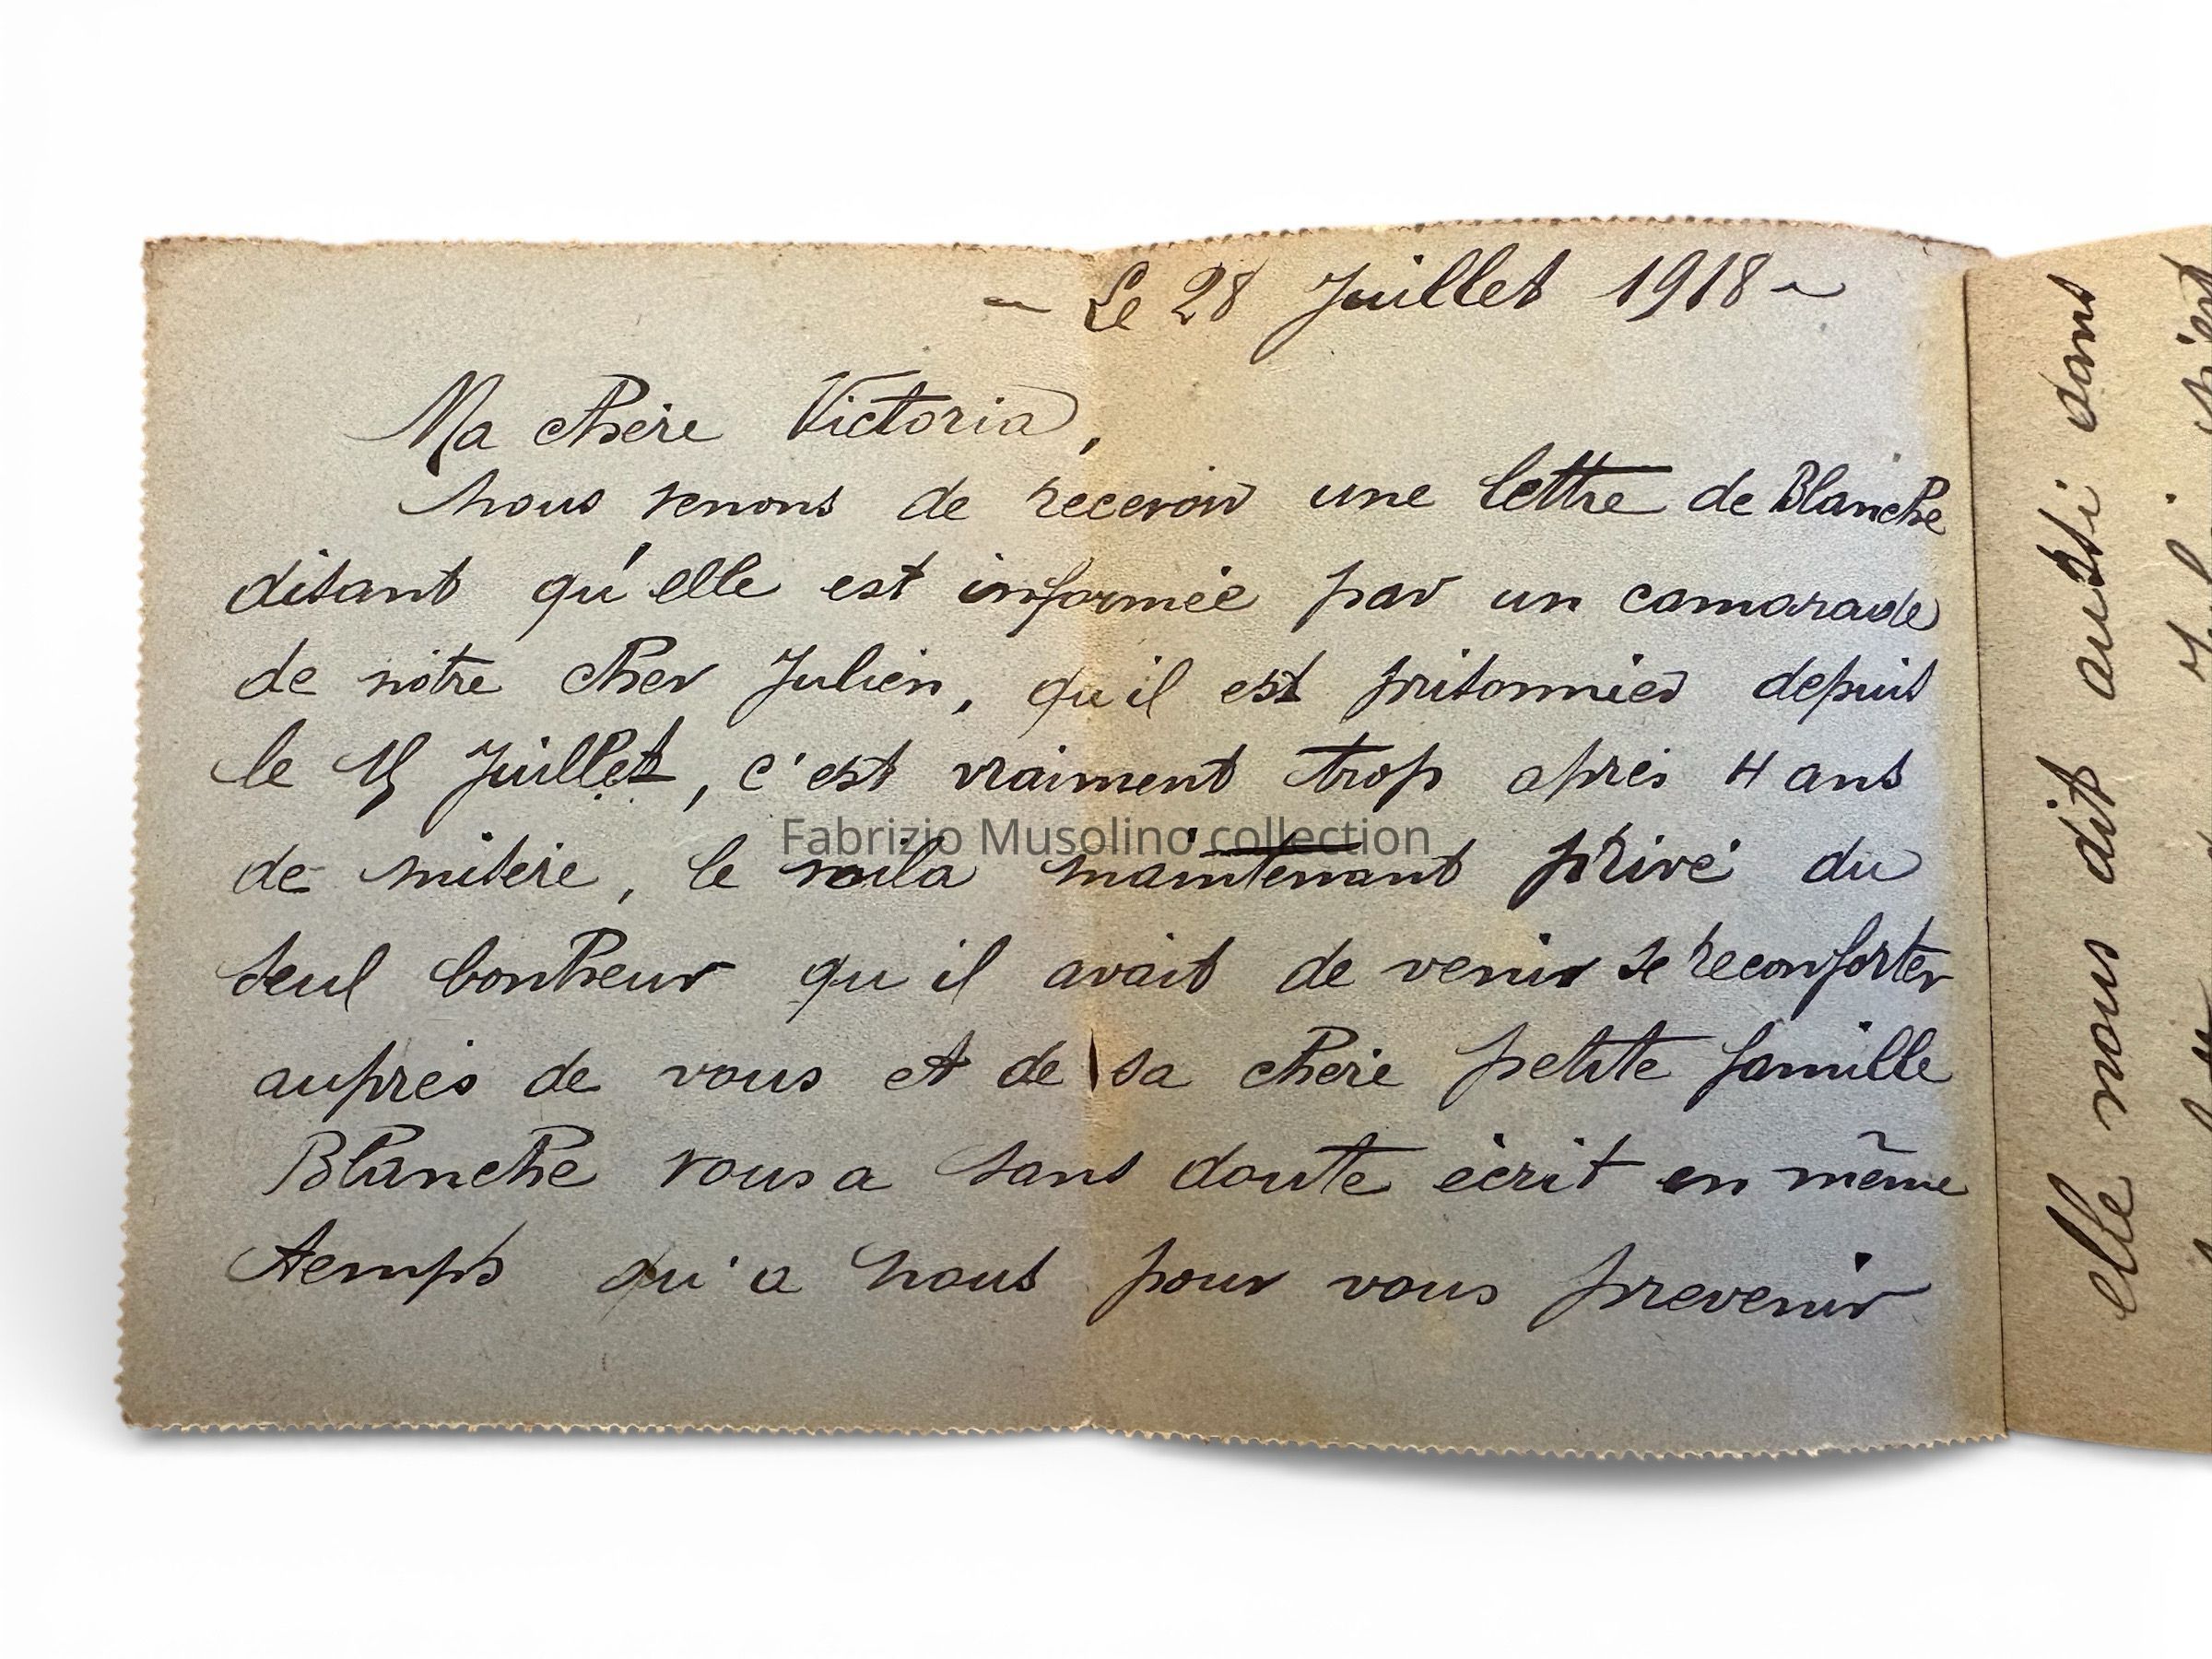 - Le 28 Juillet 1918 -
Ma chère Victoria,
Nous venons de recevoir une lettre de Blanche
disant qu'elle est informée par un camarade
de nôtre cher Julien, qu'il est prisonnier depuis
le 15 Juillet, c'est vraiment trop après 4 ans
de misère, le voila maintenant privé du
seul bonheur qu'il avait de venir se reconforter
auprès de vous et de sa chère petite famille
Blanche vous a sans doute écrit en même
temps qu'a nous pour vous prevenir
elle nous dit aussi dans
Fabrizio Musolino collection